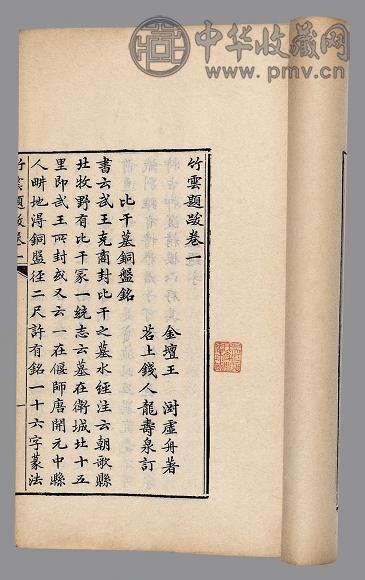 中华收藏网
www.pmv.cn
竹雲題跋卷一
金壇王 澍虛舟著
苕上錢人龍壽泉訂
比干墓銅盤銘
書云武王克商封比干之墓水經注云朝歌縣
北牧野有比干冢一統志云墓在衛城北十五
里即武王所封或又云一在偃師唐開元中縣
人畊地得銅盤径二尺許有銘一十六字篆法
竹雲題跋卷一
一